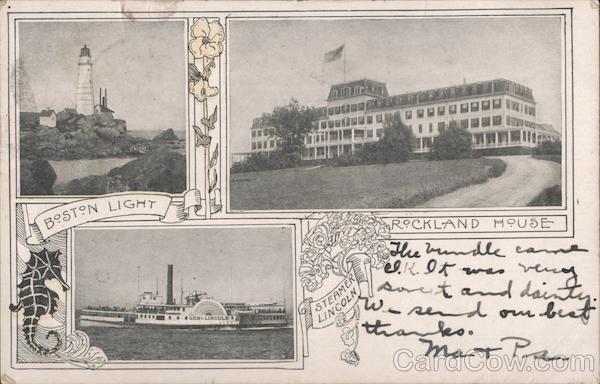 BOSTON LIGHT
ROCKLAND HOUSE
STEAMER
LINCOLN
GEN'L LINCOLN
The bundle came
O.K. It was very
sweet and dainty.
We send our best
thanks.
Ma + Pa
CardCow.com